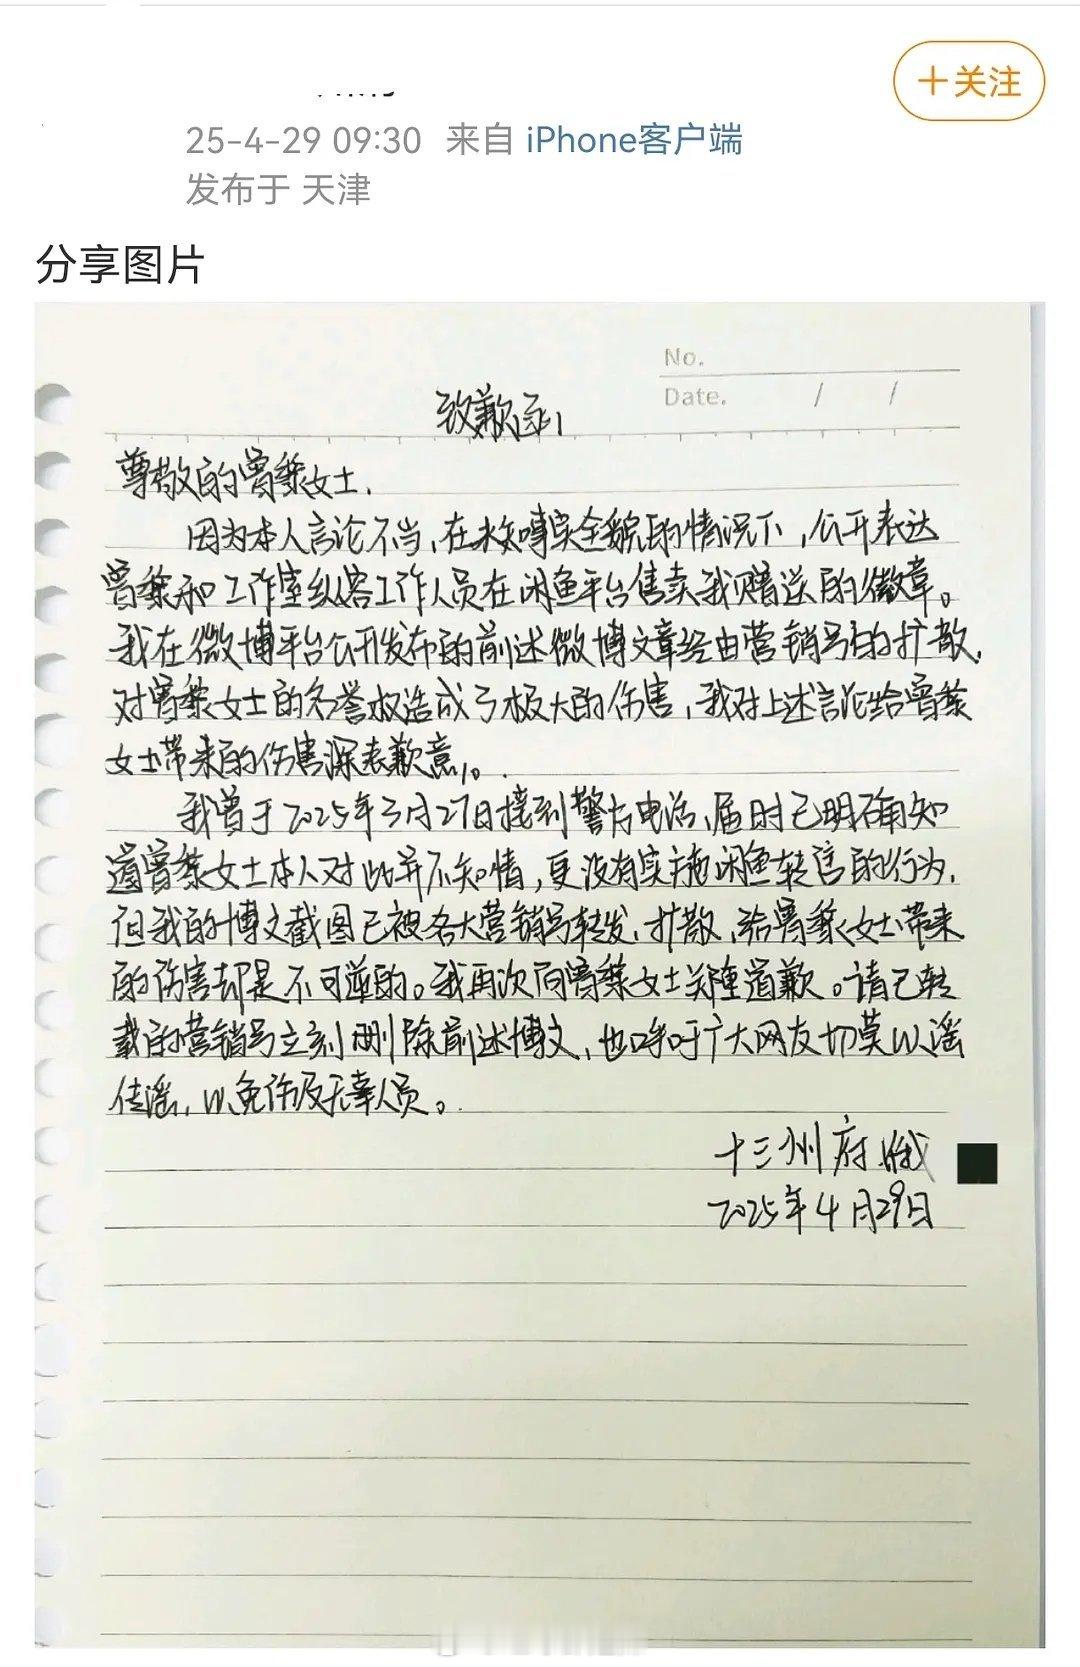 +关注
25-4-29 09:30 来自 iPhone客户端
发布于 天津
分享图片
No.
Date. / /
致歉函
尊敬的曾黎女士，
因为本人言论不当，在未知事实全貌的情况下，公开表达
曾黎和工作室纵容工作人员在闲鱼平台售卖我赠送的徽章。
我在微博平台公开发布的前述微博文章经由营销号的扩散，
对曾黎女士的名誉权造成了极大的伤害，我对上述言论给曾黎
女士带来的伤害深表歉意。
我曾于2025年3月27日接到警方电话，届时已明确知
道曾黎女士本人对此并不知情，更没有实施闲鱼转售的行为，
但我的博文截图已被各大营销号转发，扩散，给曾黎女士带来
的伤害却是不可逆的。我再次向曾黎女士郑重道歉。请已转
载的营销号立刻删除前述博文，也呼吁广大网友切莫以谣
传谣，以免伤及无辜人员。
十三州府
2025年4月29日